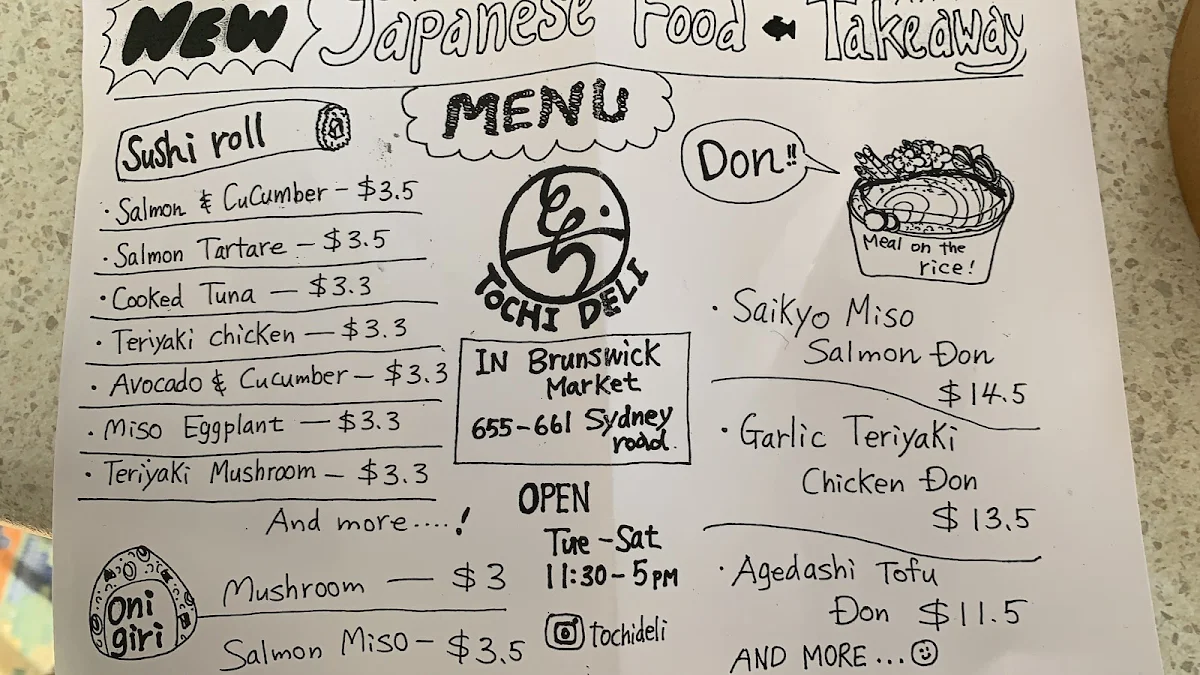 NEW Japanese Food Takeaway
MENU
Sushi roll
· Salmon & CuCumber - $3.5
· Salmon Tartare - $3.5
· Cooked Tuna - $3.3
· Teriyaki chicken - $3.3
· Avocado & Cucumber - $3.3
· Miso Eggplant - $3.3
· Teriyaki Mushroom - $3.3
And more....!
Oni
giri
Mushroom - $3
Salmon Miso - $3.5
TOCHI DELI
IN Brunswick
Market
655-661 Sydney
road.
OPEN
Tue - Sat
11:30 - 5PM
tochideli
Don!!
Meal on the
rice!
· Saikyo Miso
Salmon Don
$14.5
· Garlic Teriyaki
Chicken Don
$13.5
· Agedashi Tofu
Don $11.5
AND MORE...